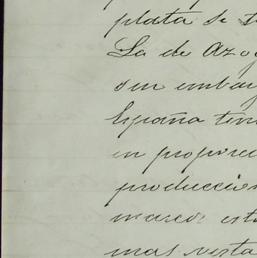 plata se
La de azog
sin embar
España
en proporci
produccion
marcos est
mas resta